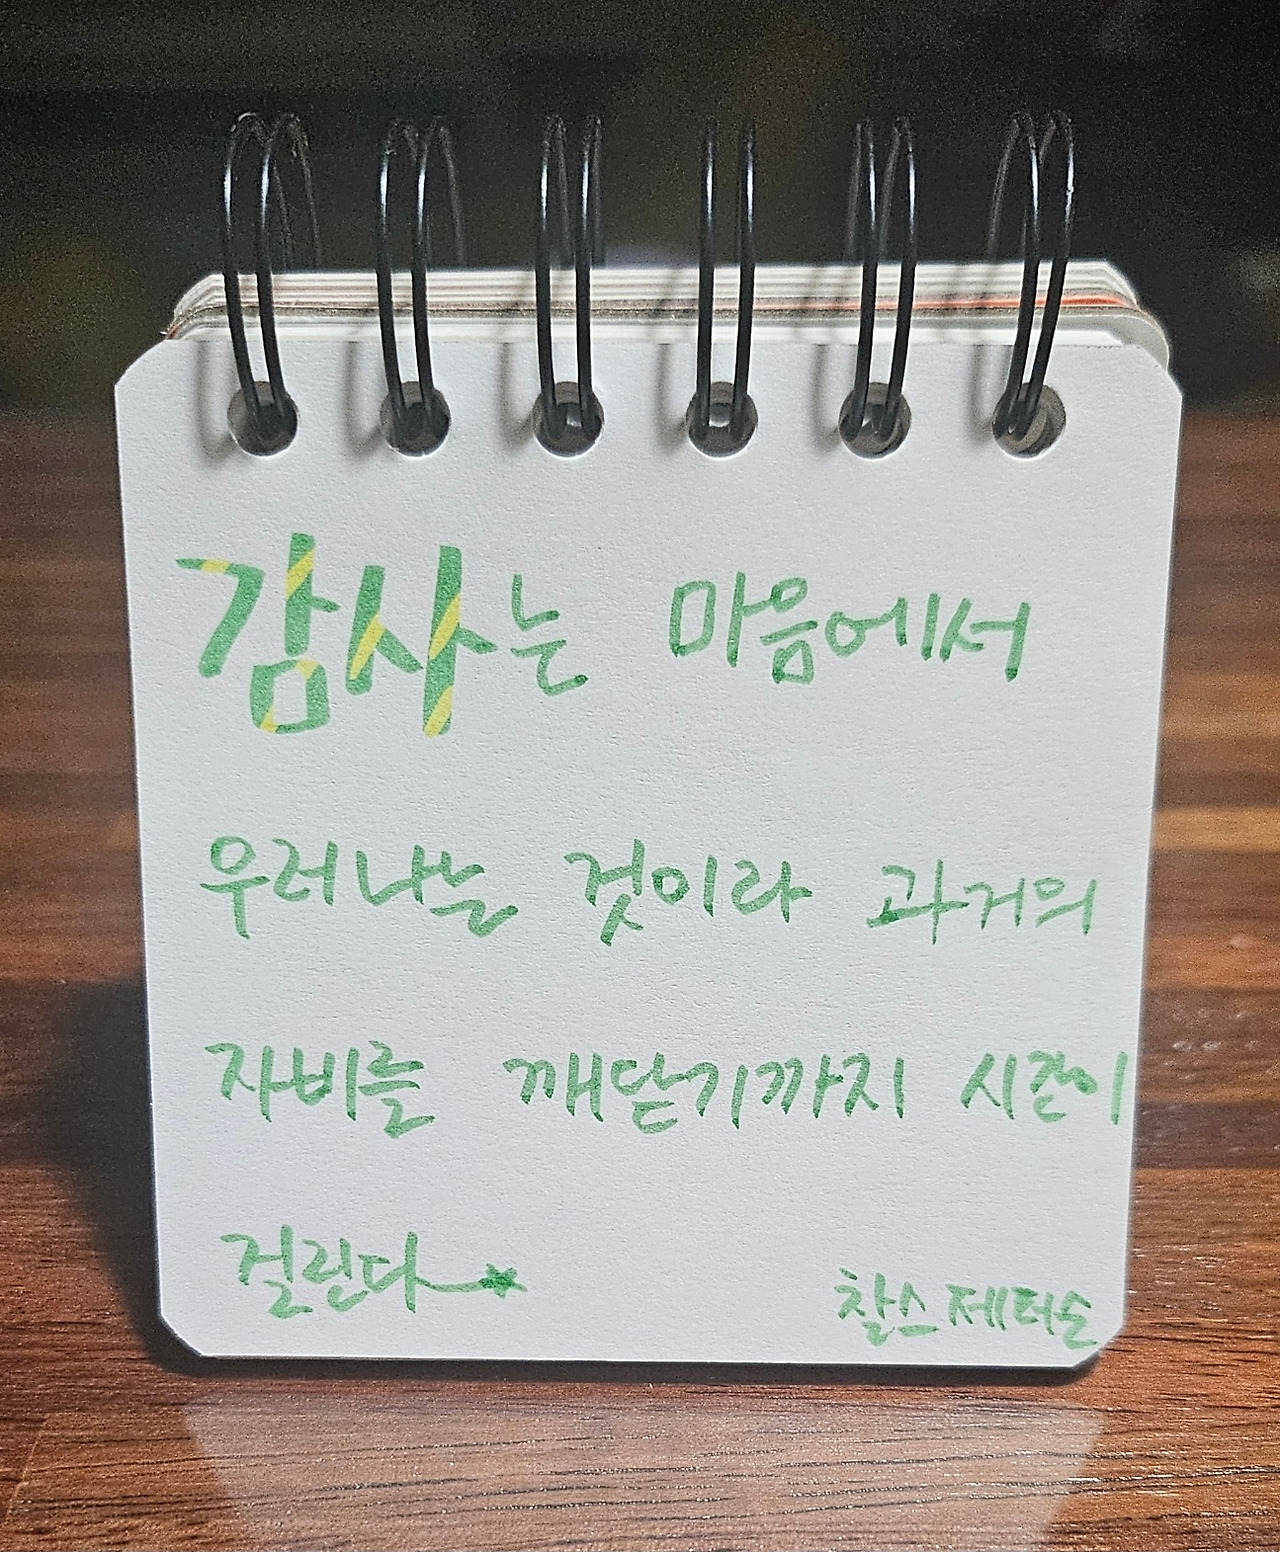 감사는 마음에서
우러나는 것이라 과거의
자비를 깨닫기까지 시간이
걸린다
찰스 제터슨